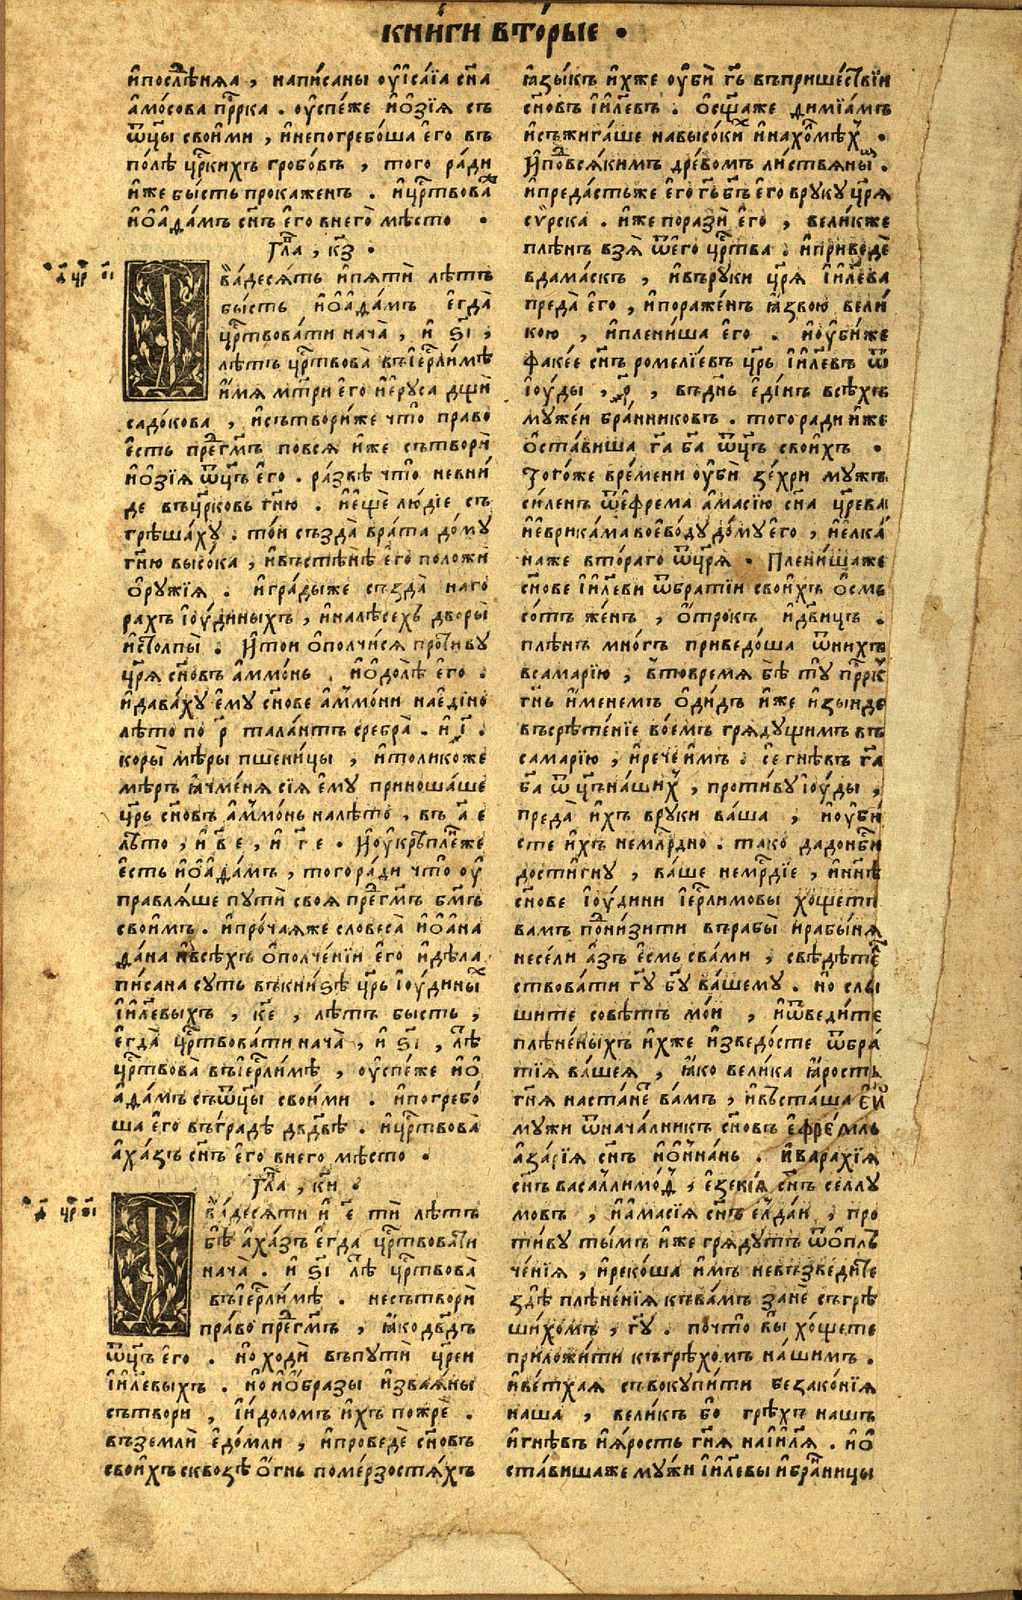 кни́ги вторы́е .
и҆послѣ́няа , напи́саны ѹ҆и҆са́їа сн҃а
а҆мо́сова прⷪ҇рка . ѹ҆спе́же и҆ѻ҆зі́ꙗ съ
ѿцы̀ свои́ми , и҆непогребо́ша е҆го̀ въ
по́лѣ цр҃кихъ гробо́въ , того̀ ра́ди
и҆́же бы́сть прокаже́нъ . и҆црⷭ҇твова
и҆ѡ҆аѳа́мъ сн҃ъ е҆го̀ внего̀ мѣ́сто .
Глⷡ҇а , к҃з .
ва́десѧть и҆пѧтѝ лѣ́тъ
бы́сть и҆ѡ҆аѳа́мъ е҆гда̀
црⷭ҇твова́ти нача̀ , и҆ ѕ҃і ,
лѣ́тъ црⷭ҇твова̀ въі҆ерⷭ҇ли́мѣ
и҆́мѧ мт҃ри е҆го̀ і҆еру́са дщѝ
садо́кова , и҆сътвори́же что̀ право
е҆́сть прⷣегмъ повсѧ̀ и҆́же сътворѝ
и҆ѻ҆зі́ꙗ ѿц҃ъ е҆го̀ . ра́звѣ что̀ невни́
де въцр҃ковь гн҃ю . и҆е҆щѐ лю́діе съ
грѣша́хꙋ . то́и създа̀ врата̀ до́мꙋ
гн҃ю высо́ка , и҆въстѣ́нѣ е҆го̀ положѝ
ѻ҆рꙋ́жїꙗ . и҆гра́дыже създа̀ наго
ра́хъ і҆ѹ́диныхъ , и҆налѣ́сехъ дворы̀
и҆столпы̀ . И҆то́и ѻ҆полчи́сѧ проти́вꙋ
цр҃ѧ̀ сн҃овъ а҆ммо́нь . и҆ѻ҆долѣ̀ е҆го̀ .
и҆дава́хꙋ е҆мꙋ̀ сн҃ове а҆ммо́ни нае҆ди́но
лѣ́то по р҃ тала́нтъ сребра̀ . и҆ і҃ .
коры̀ мѣ́ры пшени́цы , и҆толи́коже
мѣ́ръ ꙗ҆чме́нѧ сіѧ̀ е҆мꙋ̀ приноша́ше
цр҃ь сн҃овъ а҆ммо́нь налѣ́то , въ а҃ е
лѣ́то , и҆ в҃ е , и҆ г҃ е . И҆ѹ҆крѣпле́нже
е҆́сть и҆ѡ҆аѳа́мъ , тогора́ди что̀ ѹ҆
правлѧ́ше пꙋтѝ своѧ̀ прⷣегмъ бг҃мъ
свои́мъ . и҆про́чаꙗже словеса̀ и҆ѡ҆аѳа
да́на и҆всѣ́хъ ѻ҆полче́нїи е҆го̀ и҆дѣ́ла
пи́сана сꙋть въкни́ѕѣ цр҃ь і҆ѹ́дины́х
і҆и҃левыхъ , к҃е , лѣ́тъ бы́сть ,
е҆гда̀ црⷭ҇твова́ти нача̀ , и҆ ѕ҃і , лѣ
црⷭ҇твова̀ въі҆ерⷭ҇ли́мѣ , ѹ҆спе́же и҆ѡ
а҆ѳа́мъ съѿцы̀ свои́ми . и҆погребо́
ша е҆го̀ въгра́дѣ дв҃двѣ . и҆црⷭ҇твова̀
а҆ха́зъ сн҃ъ е҆го̀ внего̀ мѣ́сто .
Глⷡ҇а , к҃и .
ва́десѧти и҆ е҃ ти лѣ́тъ
бѣ̀ а҆ха́зъ е҆гда̀ црⷭ҇твова́ти
нача̀ . и҆ ѕ҃і лѣ црⷭ҇твова̀
въі҆ерⷭ҇ли́мѣ . несътворѝ
пра́во прⷣегмъ , ꙗ҆́ко дв҃дъ
ѿц҃ъ е҆го̀ . но ходѝ въпꙋтѝ цр҃еи
і҆и҃левыхъ . но и҆ѻ҆́бразы и҆зваѧ́ны
сътворѝ , і҆и́доломъ и҆́хъ пожрѐ .
въземлѝ е҆до́мли , и҆проведѐ сн҃овъ
свои́хъ сквозѣ̀ ѻ҆́гнь поме́рзостѧхъ
ꙗ҆зы́къ и҆́хже ѹ҆бѝ гь҃ въприше́ствїи
сн҃овъ і҆и҃левъ . ѻ҆сщ҃аже димїа́мъ
и҆съжига́ше навысо́ких и҆нахо́лмѣх .
И҆подвсѧ́кимъ дре́вомъ ли́ствѧным .
и҆преда́стьже е҆го̀ гь҃ бг҃ъ е҆го̀ врꙋкꙋ̀ цр҃ѧ
сѵ́рска . и҆́же поразѝ е҆го̀ , вели́кже
плѣ́нъ взѧ̀ ѿе҆го̀ црⷭ҇тва . и҆приведѐ
вдама́скъ , и҆въ́рꙋки цр҃ѧ̀ і҆и҃лева
преда̀ е҆го̀ , и҆пораже́нъ ꙗ҆́звою вели́
кою , и҆плени́ша е҆го̀ . и҆ѹ҆би́же
факе́е сн҃ъ ромелі́евъ цр҃ь і҆и҃левъ ѿ
і҆ѹ́ды , р҃к , въдн҃ь е҆ди́нъ всѣ́хъ
мꙋ́жеи бра́нниковъ . того ради и҆́же
ѻ҆ста́виша га҃ ба҃ ѿц҃ъ свои́хъ .
Того́же вре́мени ѹ҆бѝ зе́хри мꙋ́жъ
си́ленъ ѿе҆фре́ма а҆масі́ю сн҃а цр҃ева
и҆е҆врика́ма воево́дꙋ до́мꙋ е҆го̀ , и҆е҆лка́
наже втора́го ѿцр҃ѧ̀ . Плени́шаже
сн҃ове і҆и҃леви ѿбра́тїи свои́хъ ѻ҆смь
со́тъ же́нъ , ѻ҆́трокъ и҆дв҃ицъ .
плѣ́нъ мно́гъ приведо́ша ѿни́хъ
всамарі́ю , втовре́мѧ бѣ̀ тꙋ̀ прⷪ҇рк
гн҃ь и҆́менемъ ѻ҆ди́дъ и҆́же и҆зы́иде
въсрѣ́тенїе во́емъ грѧдꙋ́щимъ въ
самарі́ю , и҆рече и҆̀мъ . се гнѣ́въ га҃
ба҃ ѿц҃ъна́ших , проти́вꙋ і҆ѹ́ды ,
преда̀ и҆́хъ врꙋ́ки ва́ша , и҆ѹ҆би́
сте и҆́хъ немлⷭ҇рдно . та́ко дадонб҃си
дости́гнꙋ , ва́ше немлⷭ҇рдїе , и҆нн҃ѣ
сн҃ове і҆ѹ́дини і҆ерⷭ҇ли́мовы хо́щете
вамъ пони́зити въра́бы̀ и҆рабы́нѧ
несе́ли а҆́зъ е҆́смь сва́ми , свѣдѣте
ствова́ти гꙋ҃ бг҃ꙋ ва́шемꙋ . но слы́
шите совѣ́тъ мо́и , и҆ѿведи́те
плѣне́ныхъ и҆́хже и҆зведо́сте ѿбра́
тїѧ ва́шеѧ , ꙗ҆́ко вели́ка ꙗ҆́рость
гн҃ѧ наста́нет ва́мъ , и҆въста́ша е҆й
мꙋ́жи ѿнача́лникъ сн҃овъ е҆фре́мль
а҆за́рїѧ сн҃ъ и҆ѻ҆и҆нна́нь . и҆варахі́ѧ
сн҃ъ васалли́моѳ , е҆зекі́ѧ сн҃ъ се́ллꙋ
мовъ , и҆а҆масі́ѧ сн҃ъ е҆лда́и , про
ти́вꙋ ты́мъ и҆́же грѧдꙋ́тъ ѿѻ҆плъ
че́нїѧ , и҆реко́ша и҆́мъ невъзведи́те
здѣ̀ плѣне́нїѧ къва́мъ занѐ съгрѣ
ши́хомъ , гꙋ҃ . почто̀ вы̀ хо́щете
приложи́ти къгрѣхо́мъ на́шимъ .
и҆ве́тхаѧ съвокꙋпи́ти безако́нїѧ
наша , вели́къ бо грѣ́хъ нашъ
и҆гнѣ́въ и҆ꙗ҆́рость гн҃ѧ наі҆и҃лѧ . и҆ѻ҆
ста́вишаже мꙋ́жи і҆и҃левы и҆бра́ницы